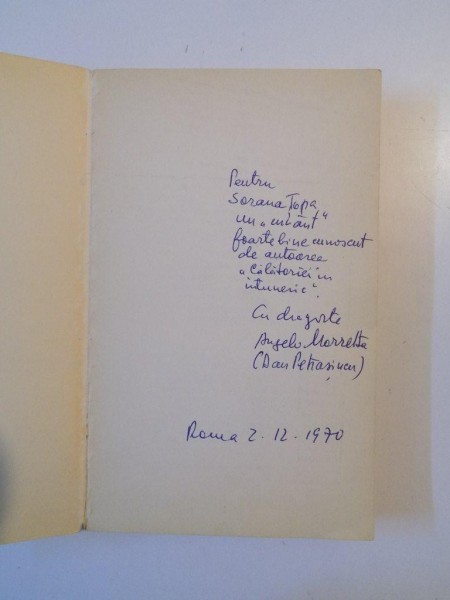 Pentru
Sorana Țopa,
un „cuvânt"
foarte bine cunoscut
de autoarea
„Călătoriei în
întuneric".
Cu dragoste
Angelo Morretta
(Dan Petrașincu)
Roma 2.12.1970